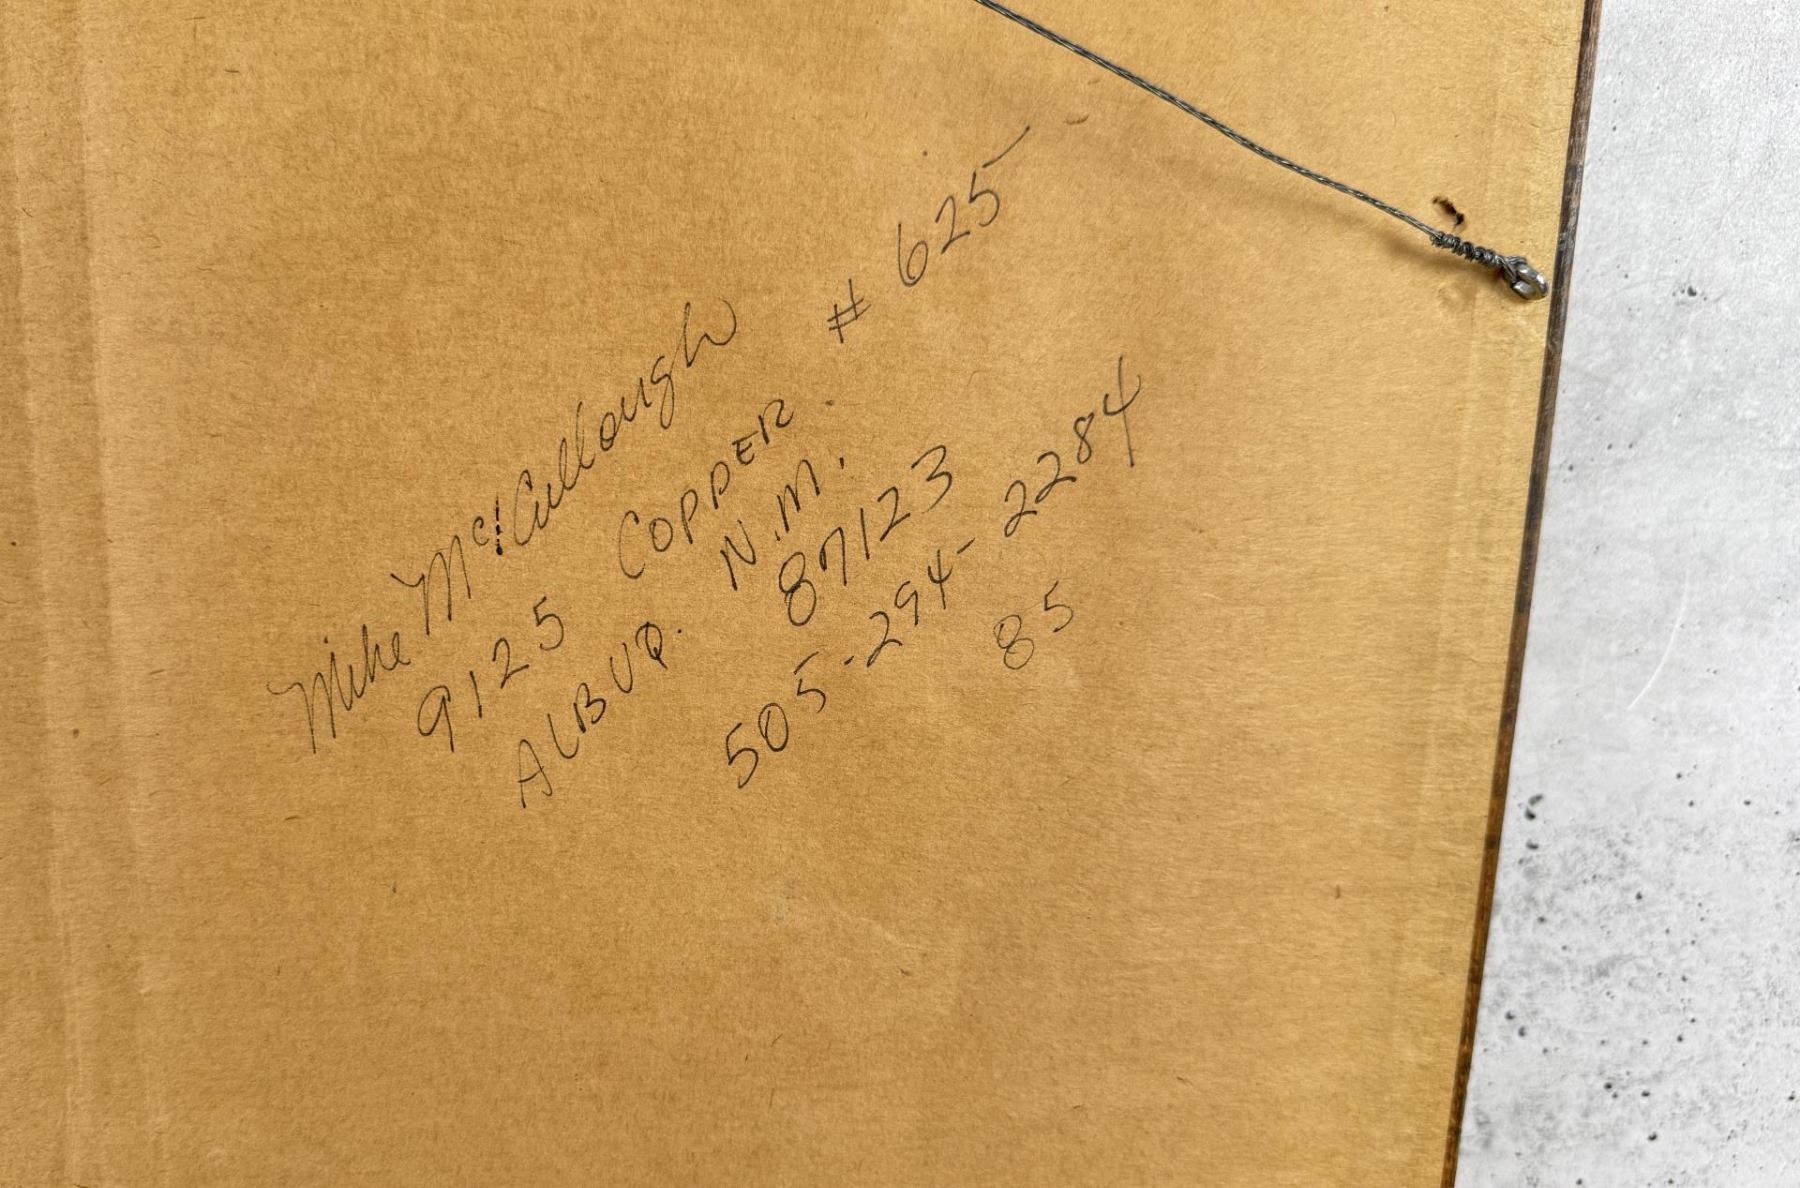 Mike McCullough
9125 COPPER. # 625
ALBUQ. N.M.
87123
505-294-2284
85